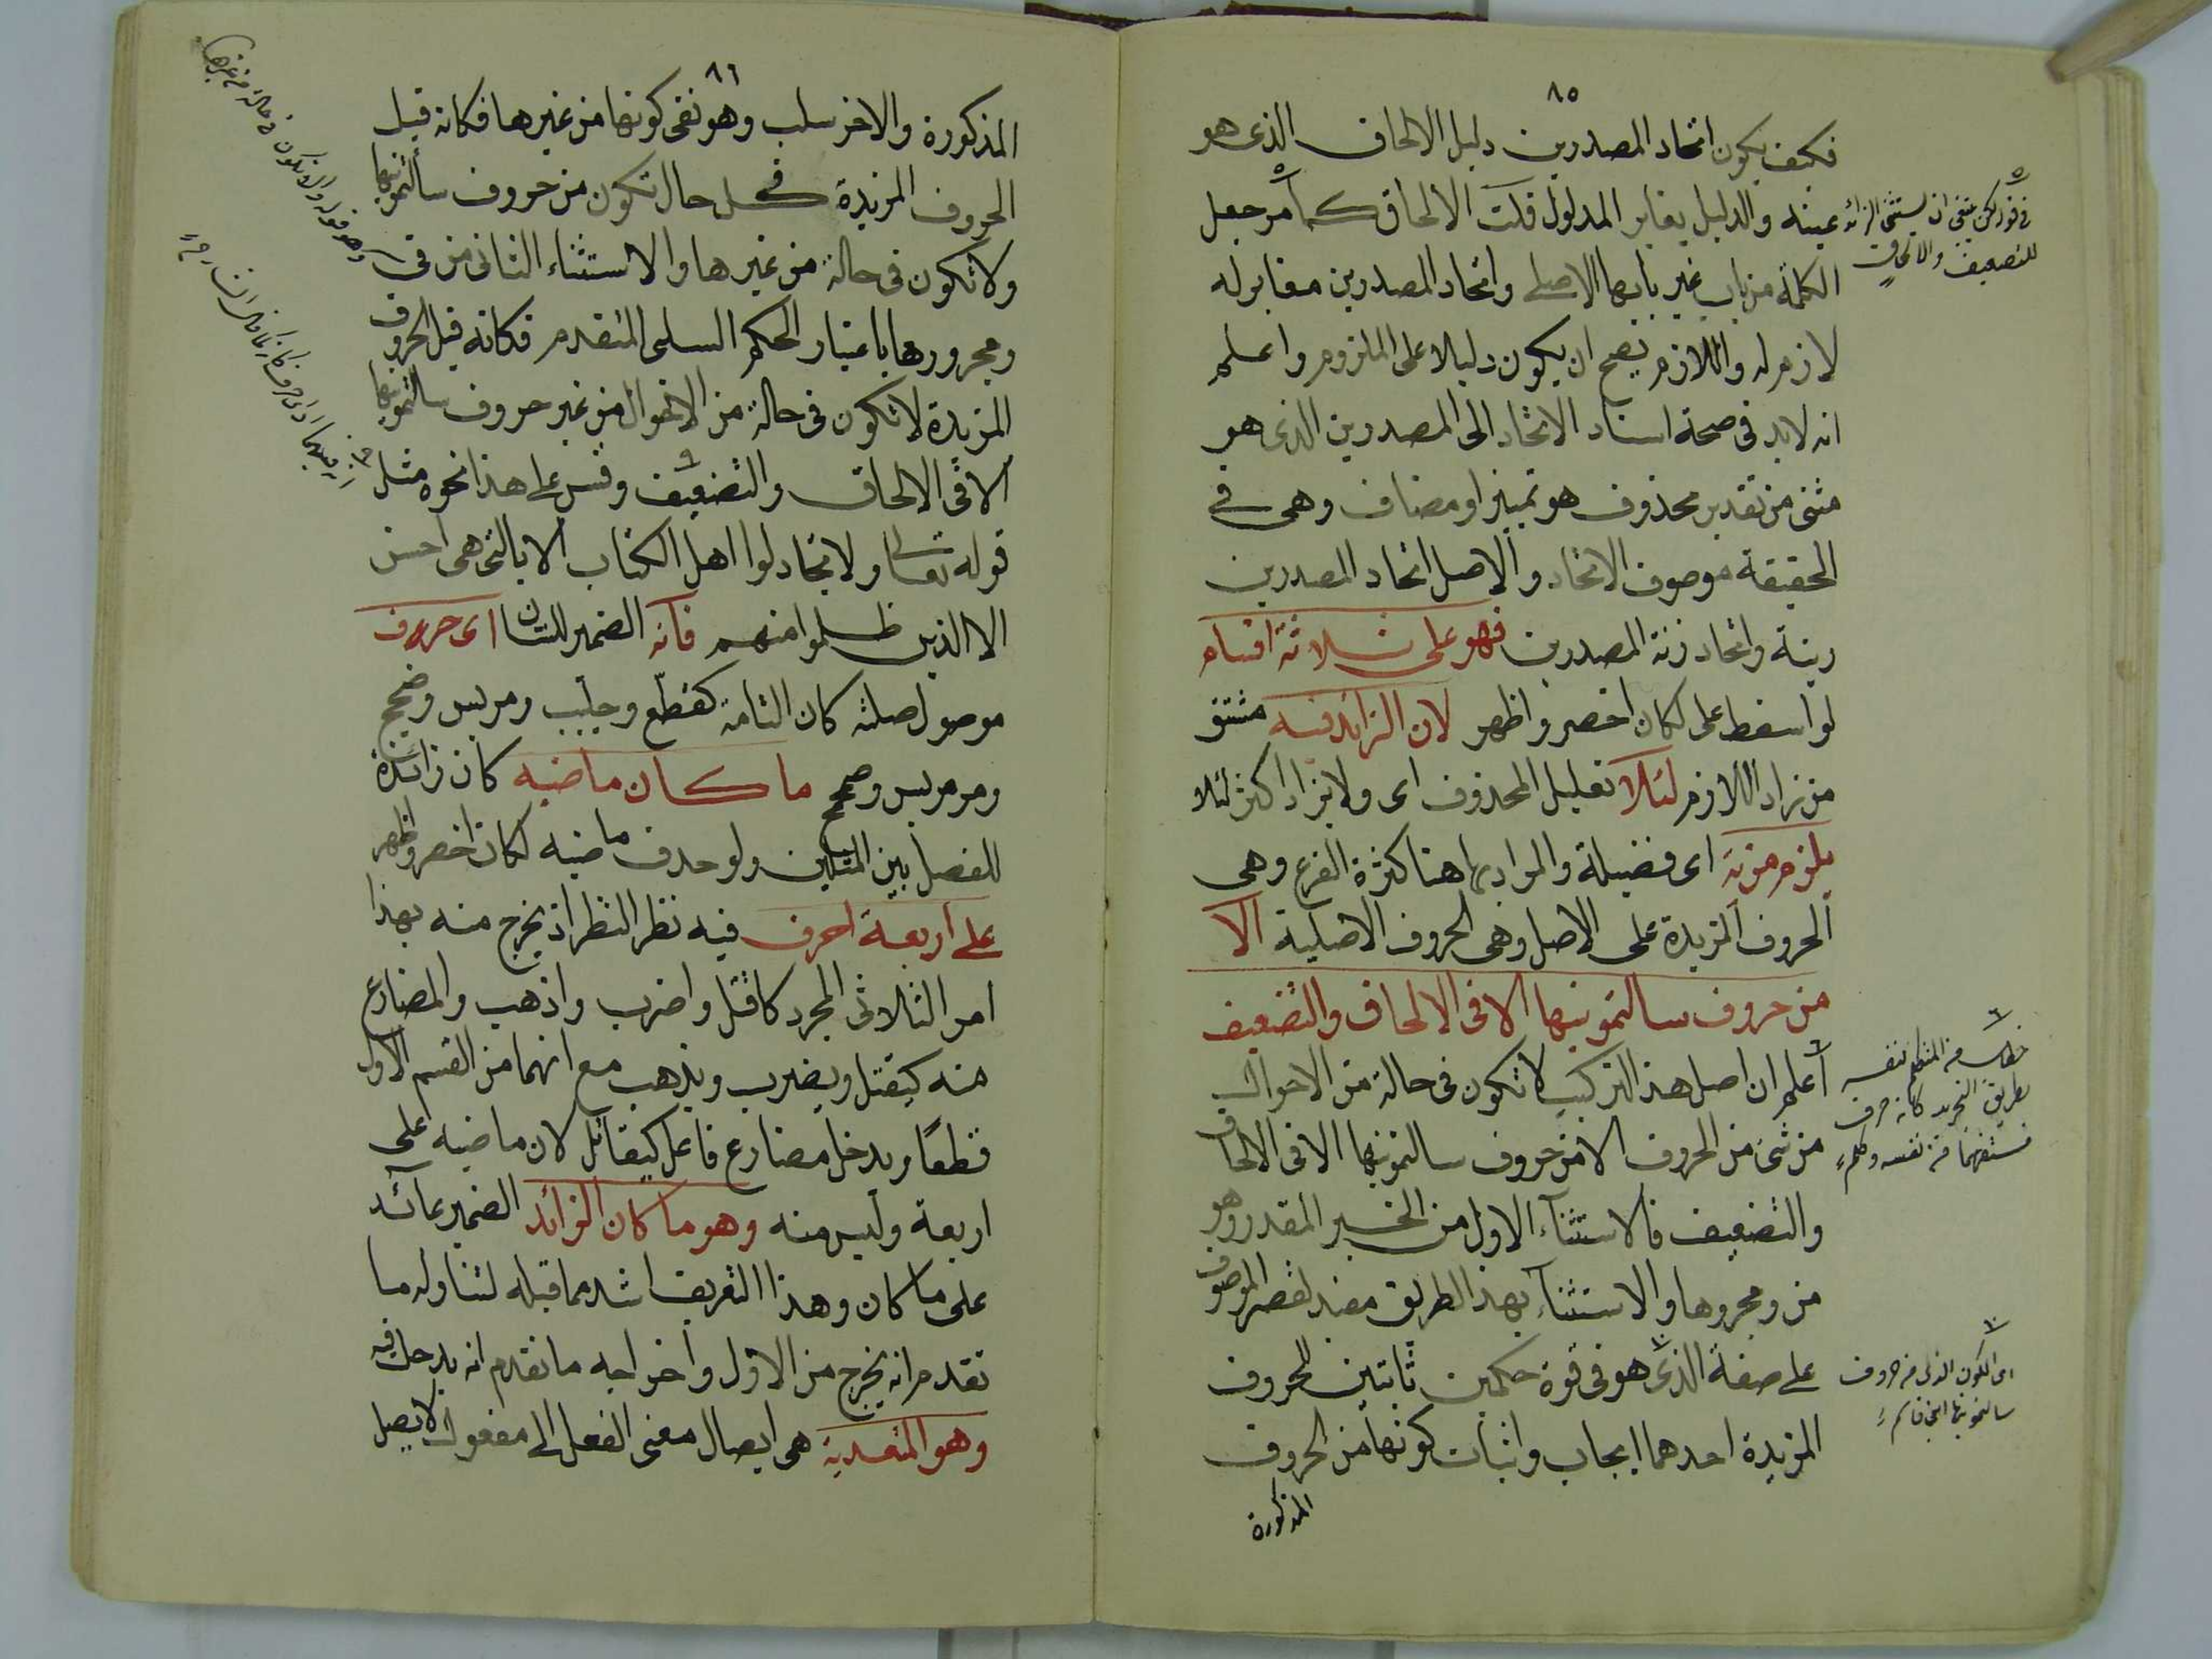 ٨٥
فكيف يكون اتحاد المصدرين دليل الالحاق الذى هو
عينه والدليل يغاير المدلول قلت الالحاق كما مر جعل
الكلمة من باب غير بابها الاصلى واتحاد المصدرين مغاير له
لازم له واللازم يصح ان يكون دليلا على الملزوم واعلم
انه لابد فى صحة اسناد الاتحاد الى المصدرين الذى هو
مثنى من تقدير محذوف هو تمييز او مضاف وهى فى
الحقيقة موصوف الاتحاد والاصل اتحاد المصدرين
زينة واتحاد زنة المصدرين فهو على ثلاثة اقسام
لو اسقط على لكان اخصر واظهر لان الزائد فيه مشتق
من زاد اللازم لئلا تعليل المحذوف اى ولا يزاد اكثر لئلا
يلزم مزية اى فضيلة والمراد بها هنا كثرة الفرع وهى
الحروف المزيدة على الاصل وهى الحروف الاصلية الا
من حروف سالتمونيها الا فى الالحاق والتضعيف
اعلم ان اصل هذا التركيب لا تكون فى حالة من الاحوال
من شئ من الحروف الا من حروف سالتمونيها الا فى الالحاق
والتضعيف فالاستثناء الاول من الخبر المقدر وهو
من ومجرورها والاستثناء بهذا الطريق مفيد لقصر الموصوف
على صفة الذى هو فى قوة حكمين ثابتين للحروف
المزيدة احدهما ايجاب واثبات كونها من الحروف
المذكورة
ان يستثنى الزائد
للتضعيف والالحاق
خطاب من المتكلم لنفسه
بطريق التجريد كانه
اى الكون الذى من حروف
سالتمونيها
٨٦
المذكورة والاخر سلب وهو نفى كونها من غيرها فكانه قيل
الحروف المزيدة فى كل حال تكون من حروف سالتمونيها
ولا تكون فى حالة من غيرها والاستثناء الثانى من فى
ومجرورها باعتبار الحكم السلبى المتقدم فكانه قيل الحروف
المزيدة لا تكون فى حالة من الاحوال من غير حروف سالتمونيها
الا فى الالحاق والتضعيف وقس على هذا نحوه مثل
قوله تعالى ولا تجادلوا اهل الكتاب الا بالتى هى احسن
الا الذين ظلموا منهم فانه الضمير للشان اى حروف
موصول صلته كان التامة كقطع وجلبب ومريس وصمح
ومرمريس وصمحمح ما كان ماضيه كان زائدة
للفصل بين المتلين ولو حذف ماضيه لكان اخصر واظهر
على اربعة احرف فيه نظر النظر اذ يخرج منه بهذا
امر الثلاثى المجرد كاقتل واضرب واذهب والمضارع
منه كيقتل ويضرب ويذهب مع انهما من القسم الاول
قطعًا ويدخل مضارع فاعل كيقاتل لان ماضيه على
اربعة وليس منه وهو ما كان الزائد الضمير عائد
على ما كان وهذا التعريف اشد مما قبله لتناوله ما
تقدم انه يخرج من الاول واخراجه ما تقدم انه يدخل فيه
وهو المتعدية هى ايصال معنى الفعل الى مفعول لا يصل